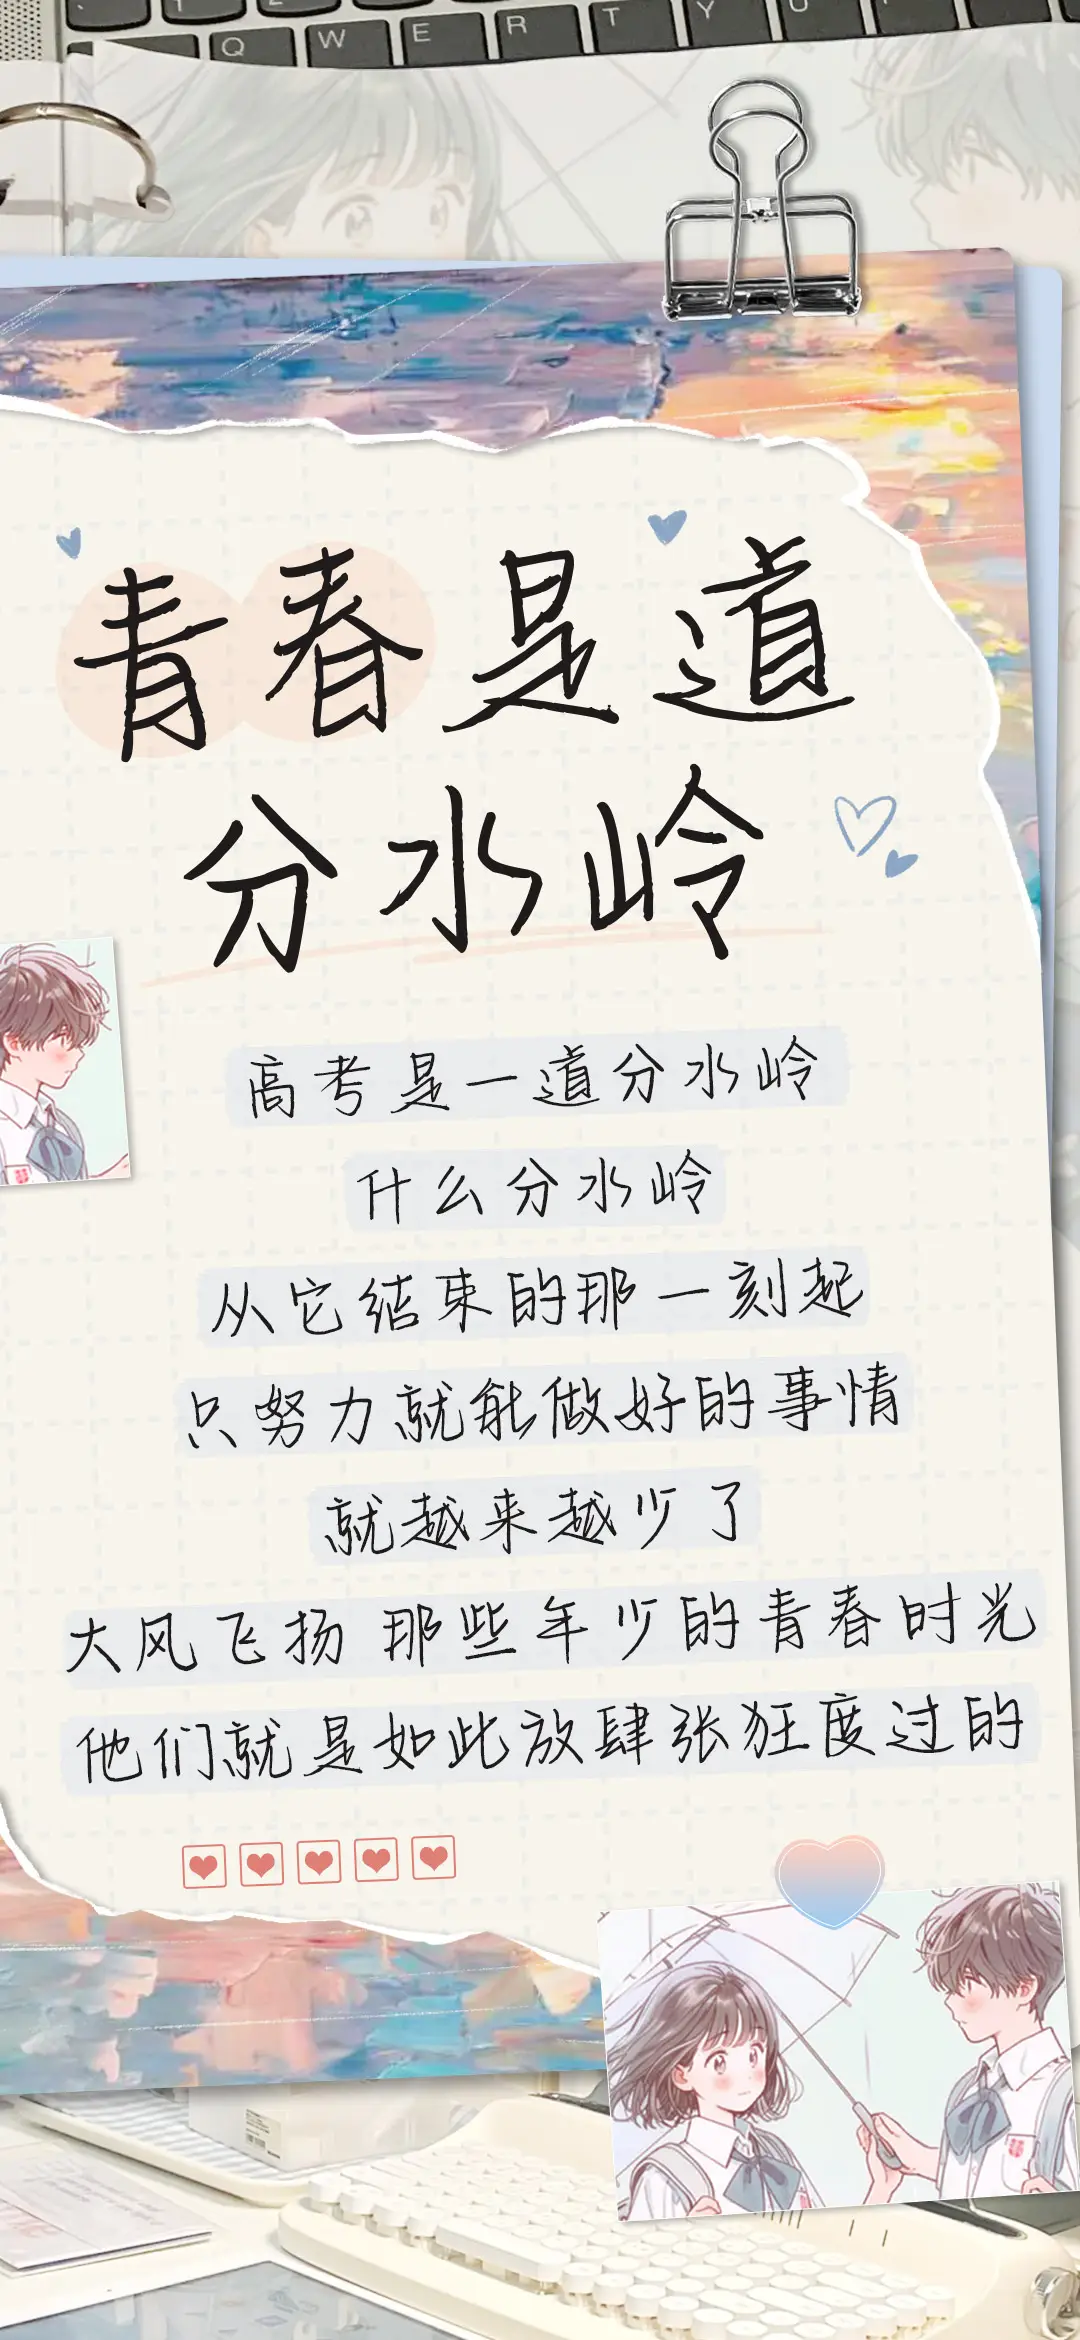 Q W E R T Y U
青春是道
分水岭
高考是一道分水岭
什么分水岭
从它结束的那一刻起
只努力就能做好的事情
就越来越少了
大风飞扬 那些年少的青春时光
他们就是如此放肆张狂度过的